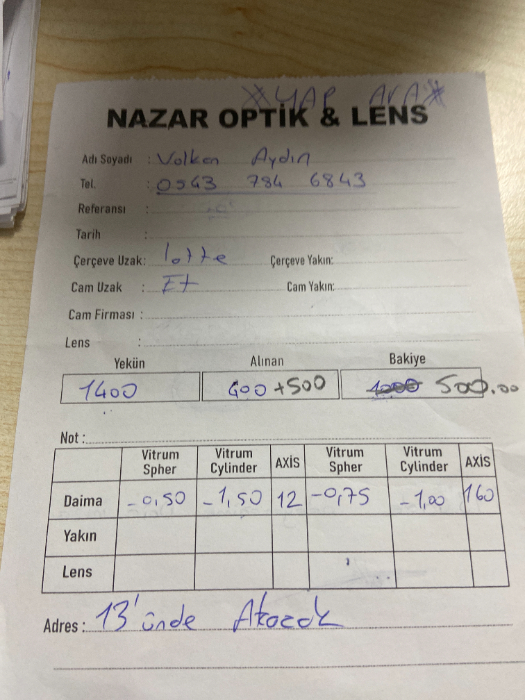 *YAP ARA*
NAZAR OPTİK & LENS
Adı Soyadı : Volkan Aydın
Tel. : 0543 784 6843
Referansı :
Tarih :
Çerçeve Uzak: lotte Çerçeve Yakın:
Cam Uzak : Cam Yakın:
Cam Firması :
Lens :
Yekün Alınan Bakiye
1400 400+500 1000 500.00
Not :
Vitrum Spher Vitrum Cylinder AXİS Vitrum Spher Vitrum Cylinder AXİS
Daima -0,50 -1,50 12 -0,75 -1,00 160
Yakın
Lens
Adres : 13'ünde